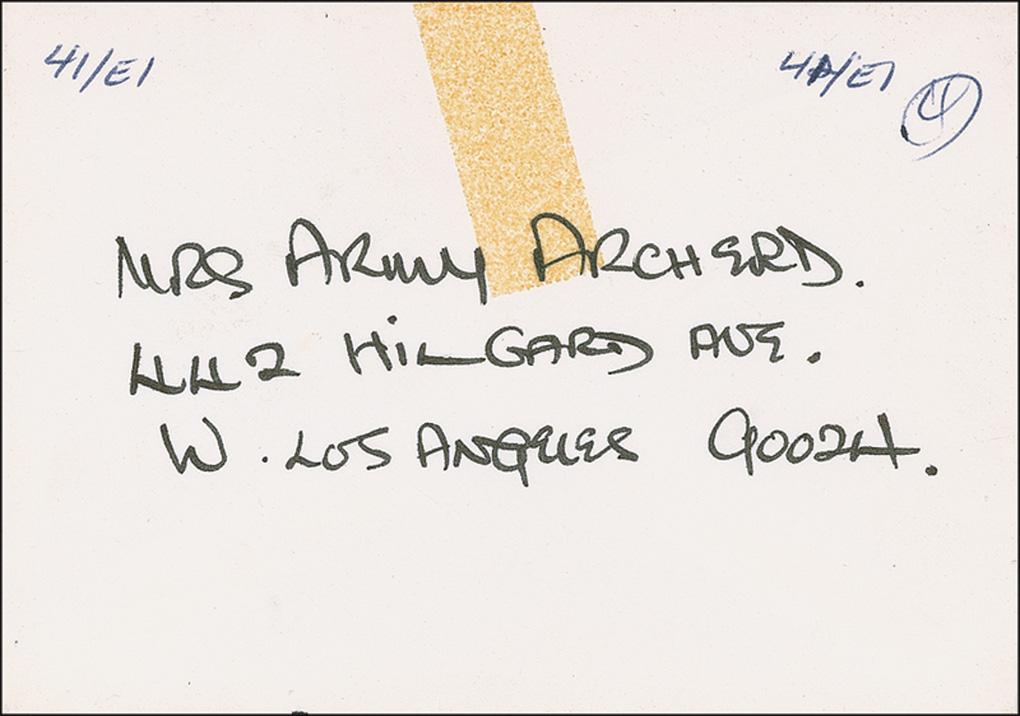 41/E1 41/E1 4
MRS ARMY ARCHERD.
442 HILGARD AVE.
W. LOS ANGELES 90024.